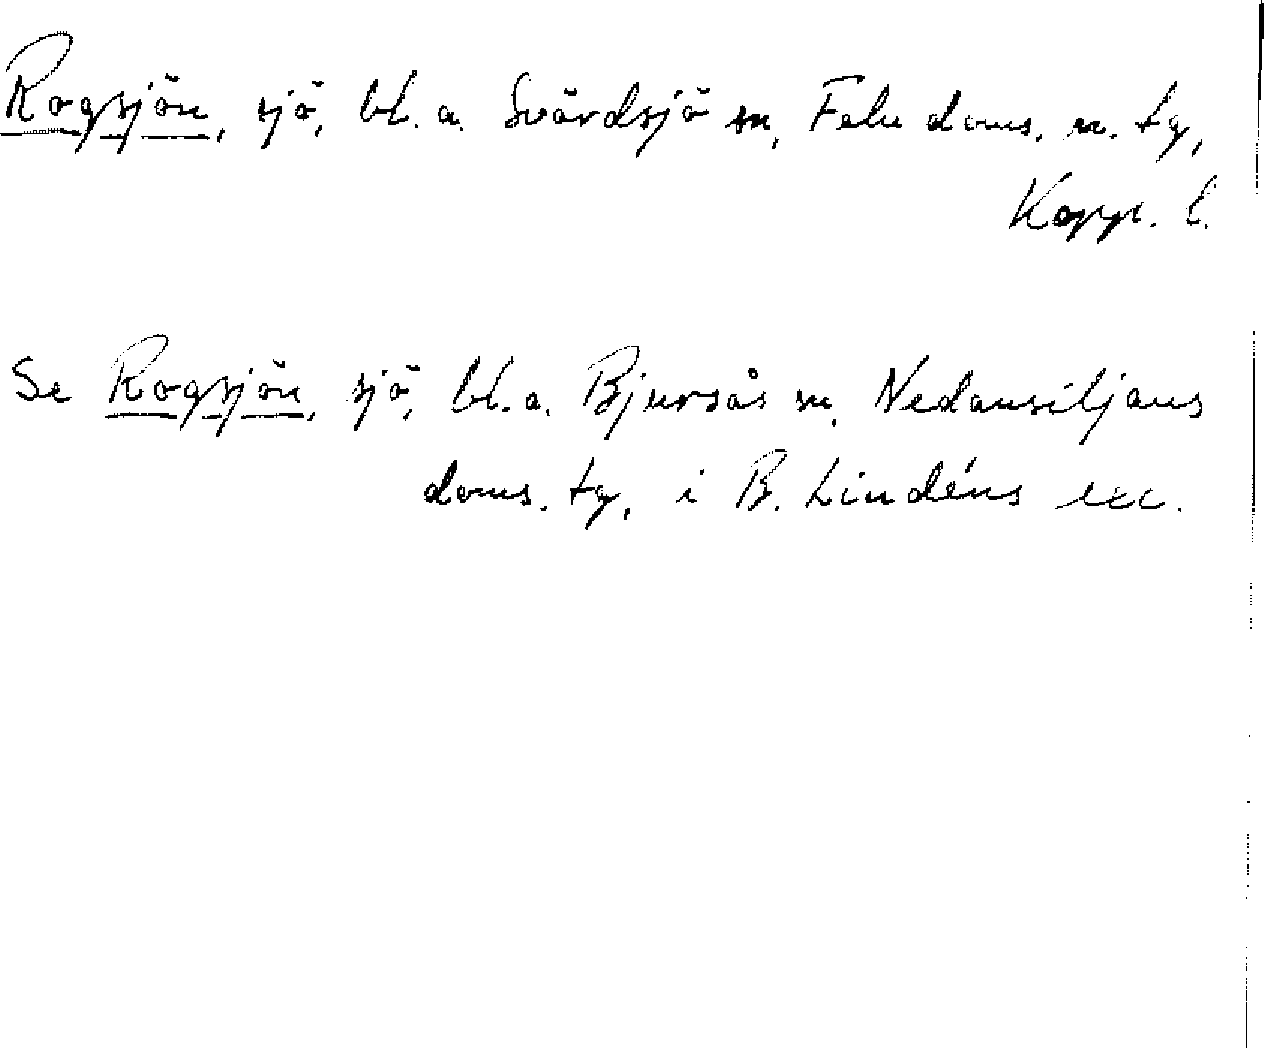 Rogsjön, sjö, bl. a. Svärdsjö sn, Falu doms. n. tg,
Kopp. l.
Se Rogsjön, sjö, bl. a. Bjursås sn, Nedansiljans
doms. tg, i B. Lindéns exc.